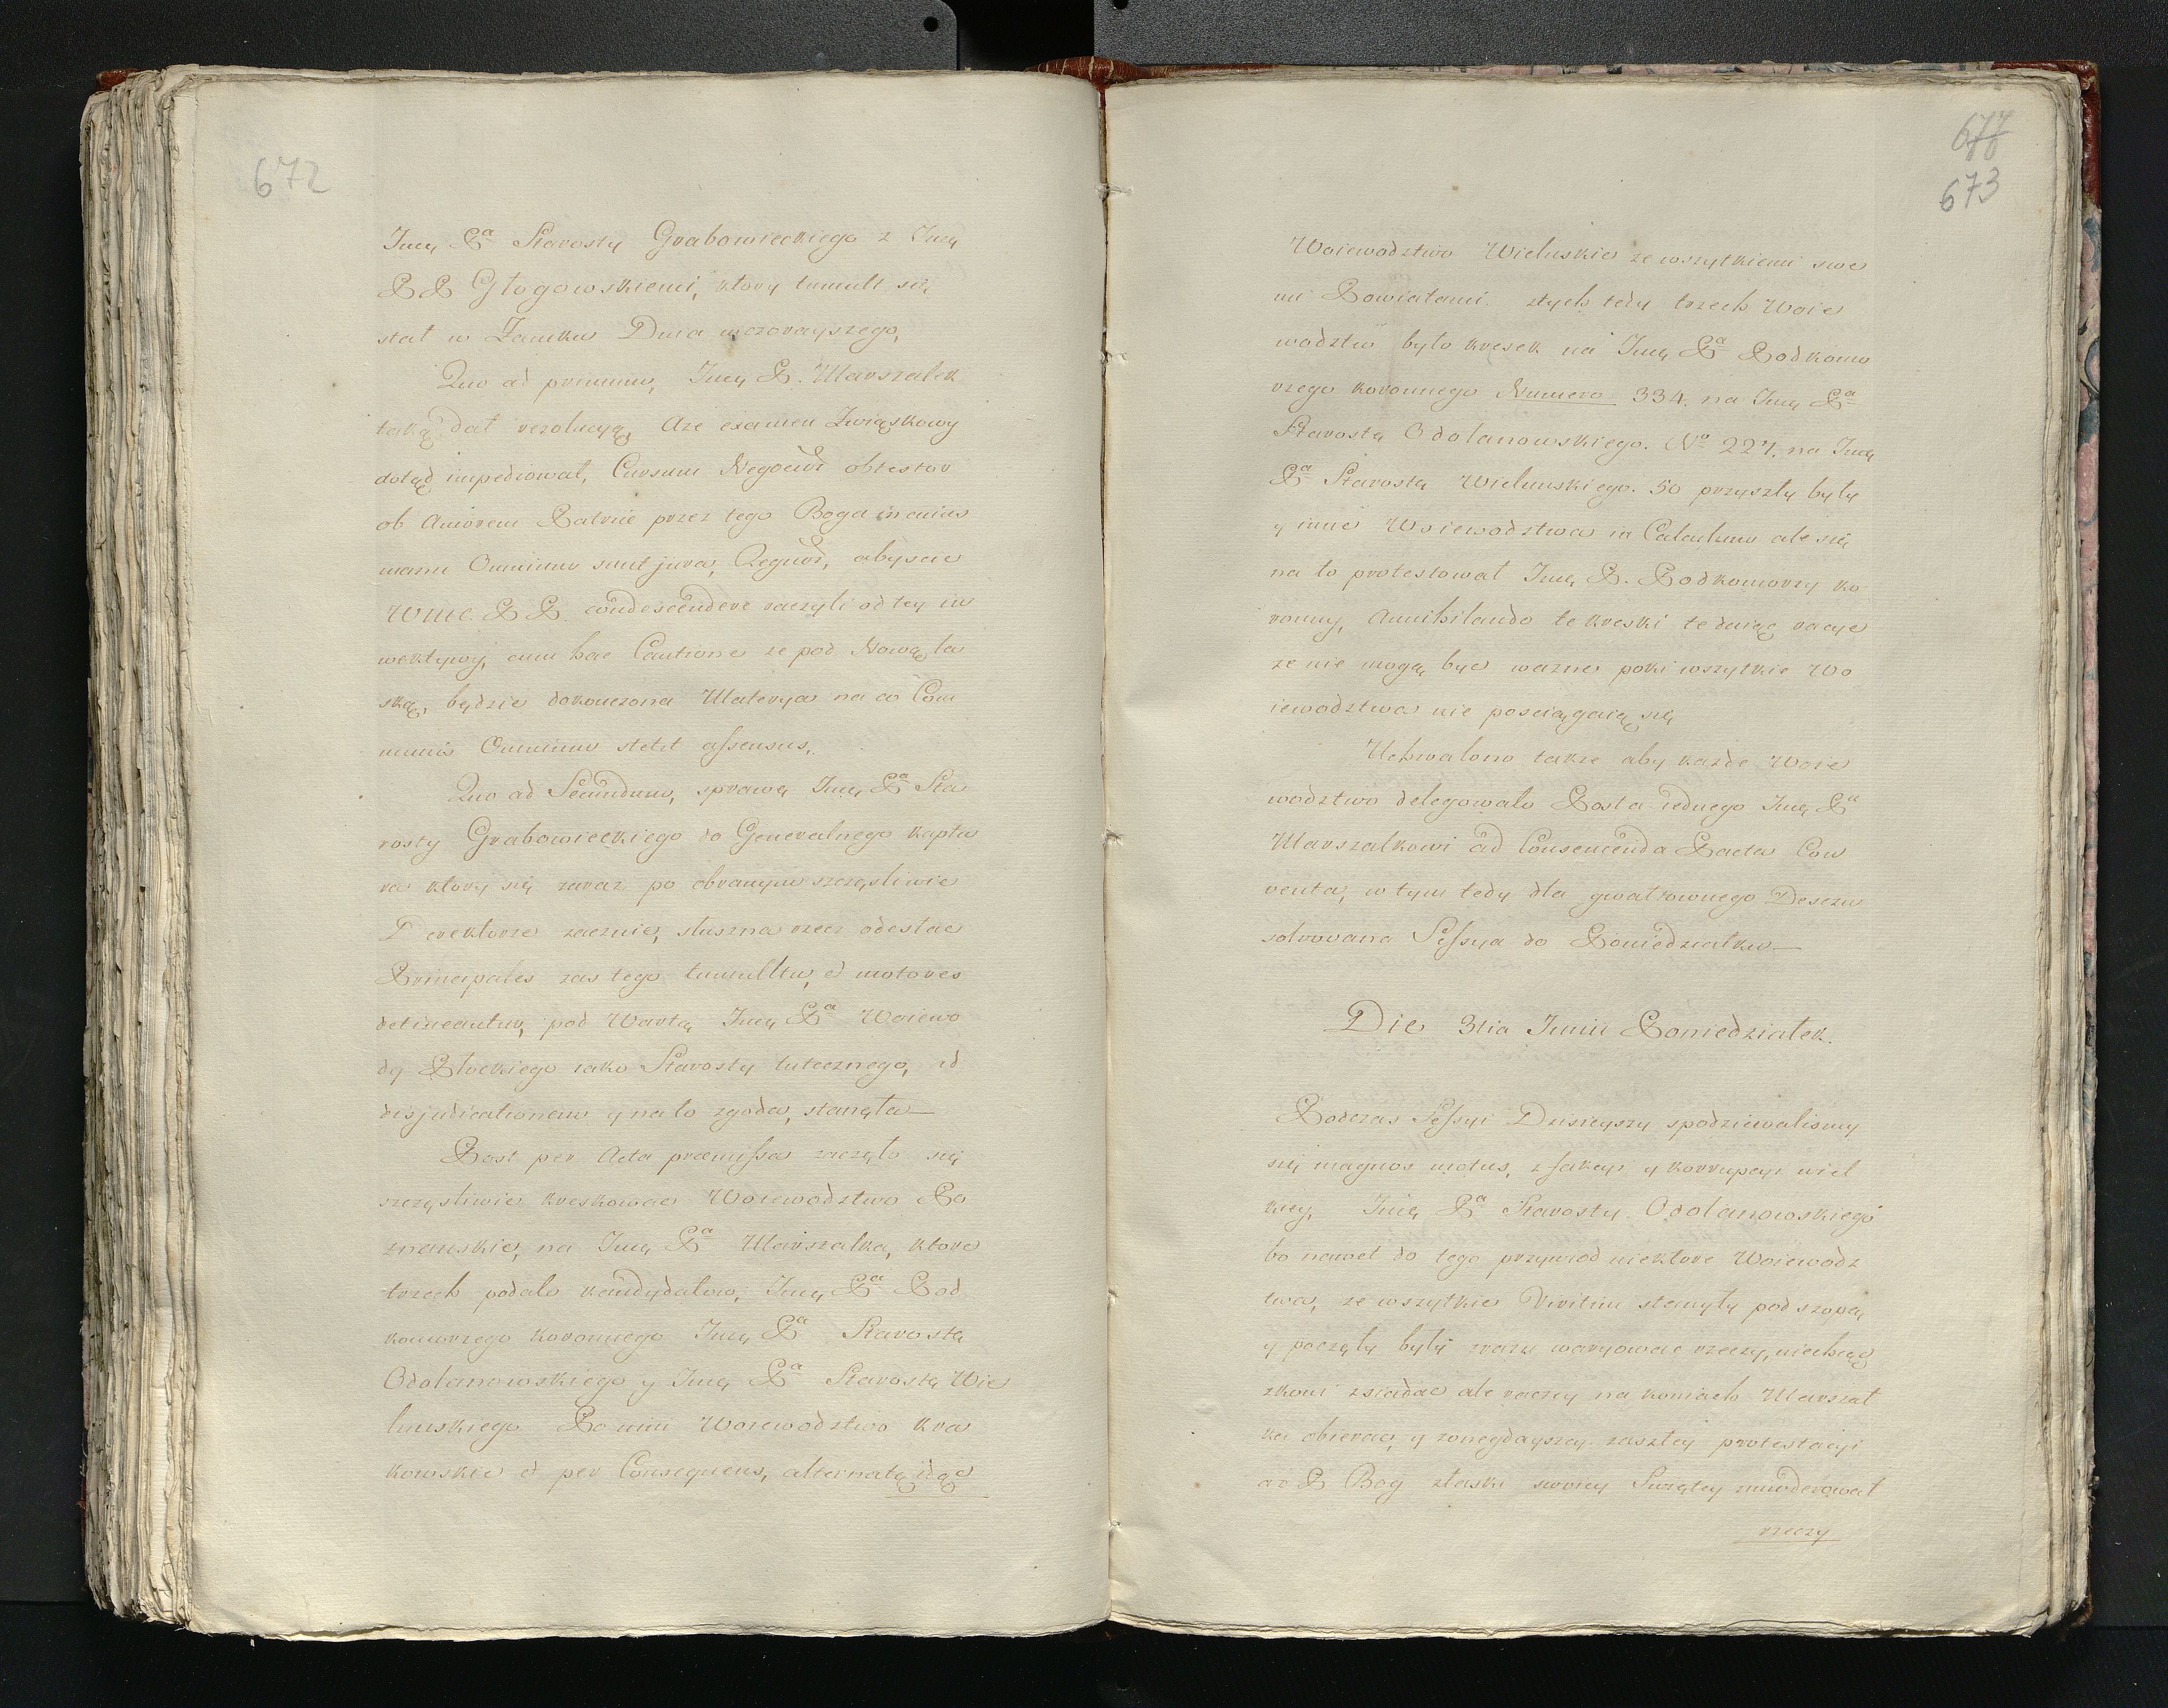 672
Imę Pa Starosty Grabowieckiego z Imę
PP Głogowskiemi, ktory tumult się
stał w Zamku Dnia wczorayszego,
Quo ad primum, Imę P. Marszałek
taką dał rezolucyą, Aze examen Związkowy
dotąd impediował, Cursum Negocii obtestor
ob Amorem Patriæ przez tego Boga in cuius
manu Omnium sunt jura, Regni, abyscie
WMc PP. condescendere raczyli od tey in
wektywy, cum hac Cautione ze pod Nową la
ską, będzie dokonczona Materya na co Com
munis Omnium stetit assensus,.
Quo ad Secundum, sprawę Imę Pa Sta
rosty Grabowieckiego do Generalnego kaptu
ra ktory się zaraz po obranym szczęsliwie
Derektorze zacznie, słuszna rzecz odesłac
Principales zas tego tumultu, et motores
detineantur, pod Wartą Imę Pa Woiewo
dy Płockiego iako Starosty tutecznego, ad
disjudicationem y na to zgoda, stanęła—
Post per Acta præmissa zaczęło się
szczęsliwie kreskowac Woiewodztwo Po
znanskie, na Imę Pa Marszałka, ktore
trzech podało kandydatow, Imę Pa Pod
komorzego koronnego Imę Pa Starostę
Odolanowskiego y Imę Pa Starostę Wie
lunskiego Po nim Woiewodztwo kra
kowskie et per Consequens, alternatę idąc
677
673
Woiewodztwo Wielunskie ze wszytkiemi swe
mi Powiatami. ztych tedy trzech Woie
wodztw było kresek na Imę Pa Podkomo
rzego koronnego Numero 334. na Imę Pa
Starostę Odolanowskiego. No 227. na Imę
Pa Starostę Wielunskiego. 50 przyszły były
y inne Woiewodztwa in Calculum ale się
na to protestował Imę P. Podkomorzy ko
ronny, Annihilando te kreski te daiąc racye
ze nie mogą byc wazne poki wszytkie Wo
iewodztwa nie posciągaią się
Uchwalono takze aby kazde Woie
wodztwo delegowało Posła iednego Imę Pa
Marszałkowi ad Conscienda Pacta Con
venta, w tym tedy dla gwałtownego Deszczu
solvowana Sessya do Poniedziałku—
Die 3tia Junii Poniedziałek.
Podczas Sessyi Dzisieyszy spodziewalismy
się magnos motus, z fakcyi y korrupcyi wiel
kiey, Imę Pa Starosty Odolanowskiego
bo nawet do tego przywiod niektore Woiewodz
twa, ze wszytkie Viritim stanęły pod szopą
y poczęły były zrazu waryowac rzeczy, niechcąc
zkoni zsiadac ale raczey na koniach Marszał
ka obierac, y zonegdayszey zaszłey protestacyi
az P Bog złaski swoiey Swiętey moderował
rzeczy